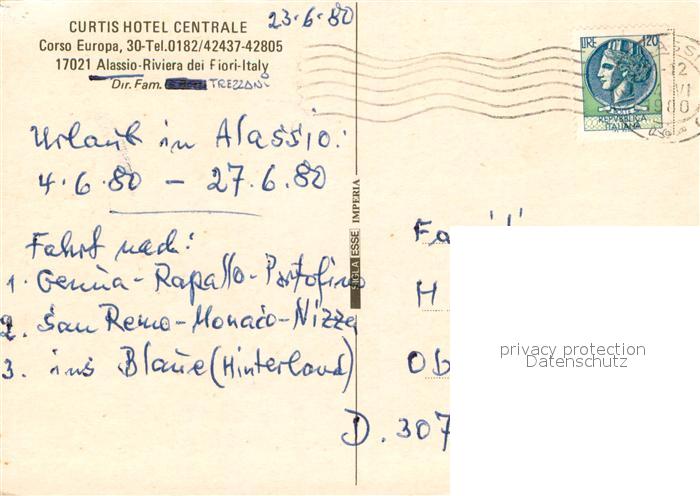 CURTIS HOTEL CENTRALE
Corso Europa, 30-Tel.0182/42437-42805
17021 Alassio-Riviera dei Fiori-Italy
Dir. Fam. TREZZANI
23·6·80
LIRE 120
REPVBBLICA
ITALIANA
Urlaub in Alassio:
4·6·80 – 27.6.80
Fahrt nach:
1. Genua-Rapallo-Portofino
2. San Remo-Monaco-Nizza
3. ins Blaue (Hinterland)
SIGLA ESSE IMPERIA
H
Ob
D. 307
privacy protection
Datenschutz